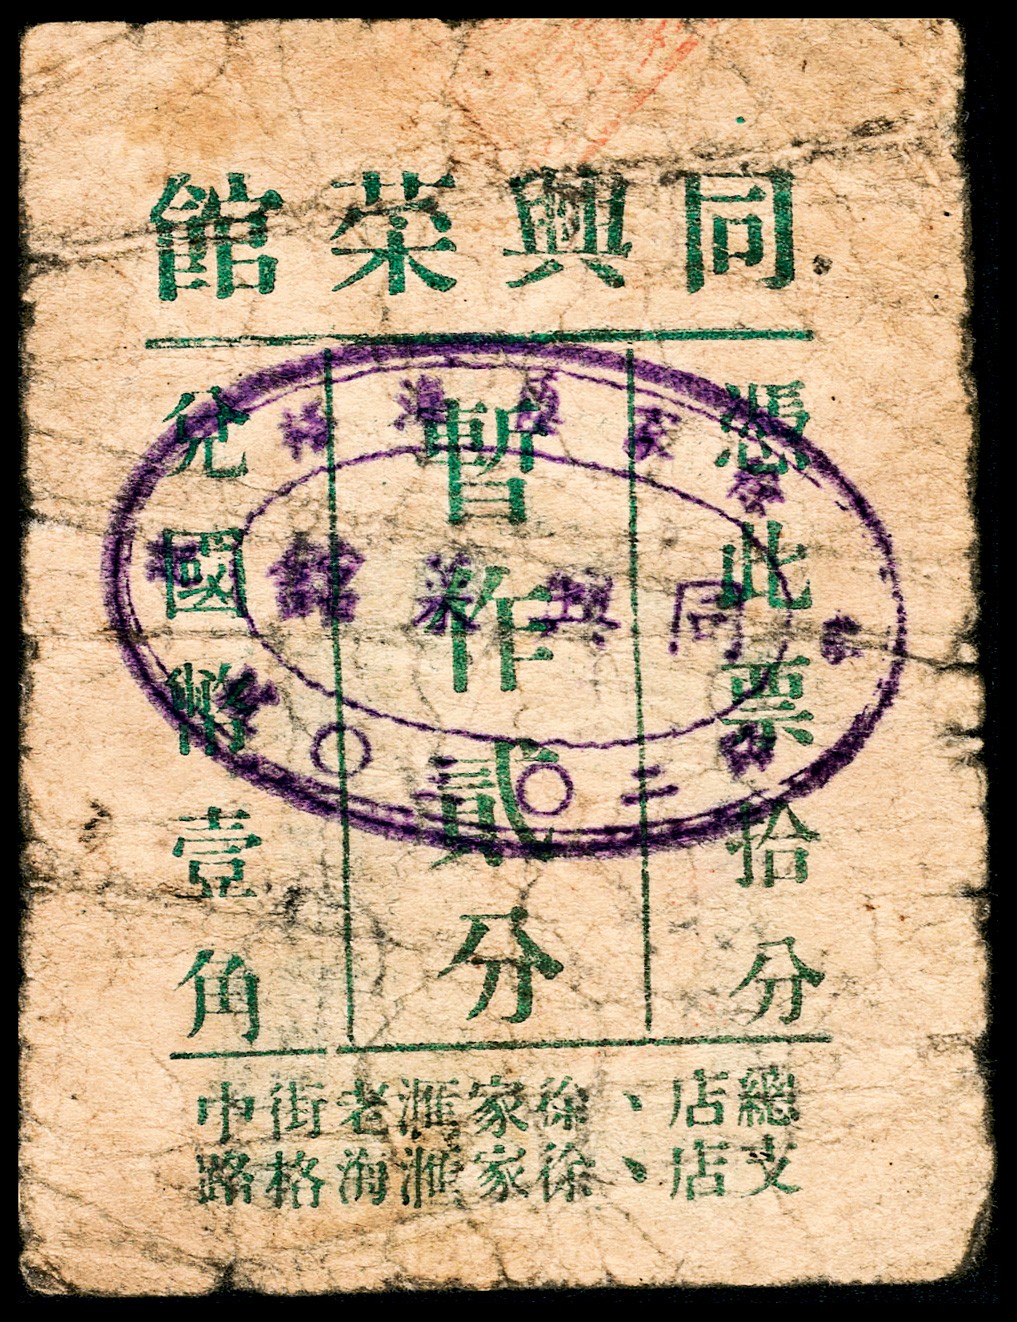 同興菜館
憑此票拾分
暫作貳分
兌國幣壹角
總店、徐家滙老街中
支店、徐家滙海格路
同興菜館
二〇三〇